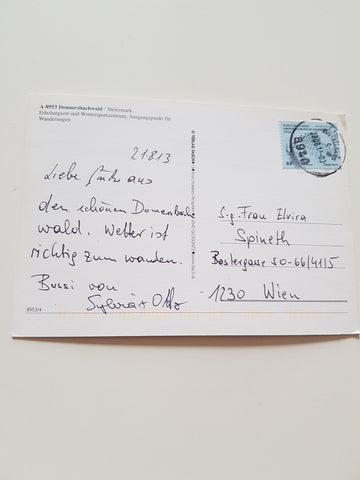 A-8953 Donnersbachwald / Steiermark
Erholungsort und Wintersportzentrum, Ausgangspunkt für
Wanderungen
21813
Liebe Grüße aus
den schönen Donnersbach
wald. Wetter ist
richtig zum wandern.
Bussi von
Sylvia + Otto
8953/4
S.g. Frau Elvira
Spineth
Bastergasse 50-66/41/5
1230 Wien